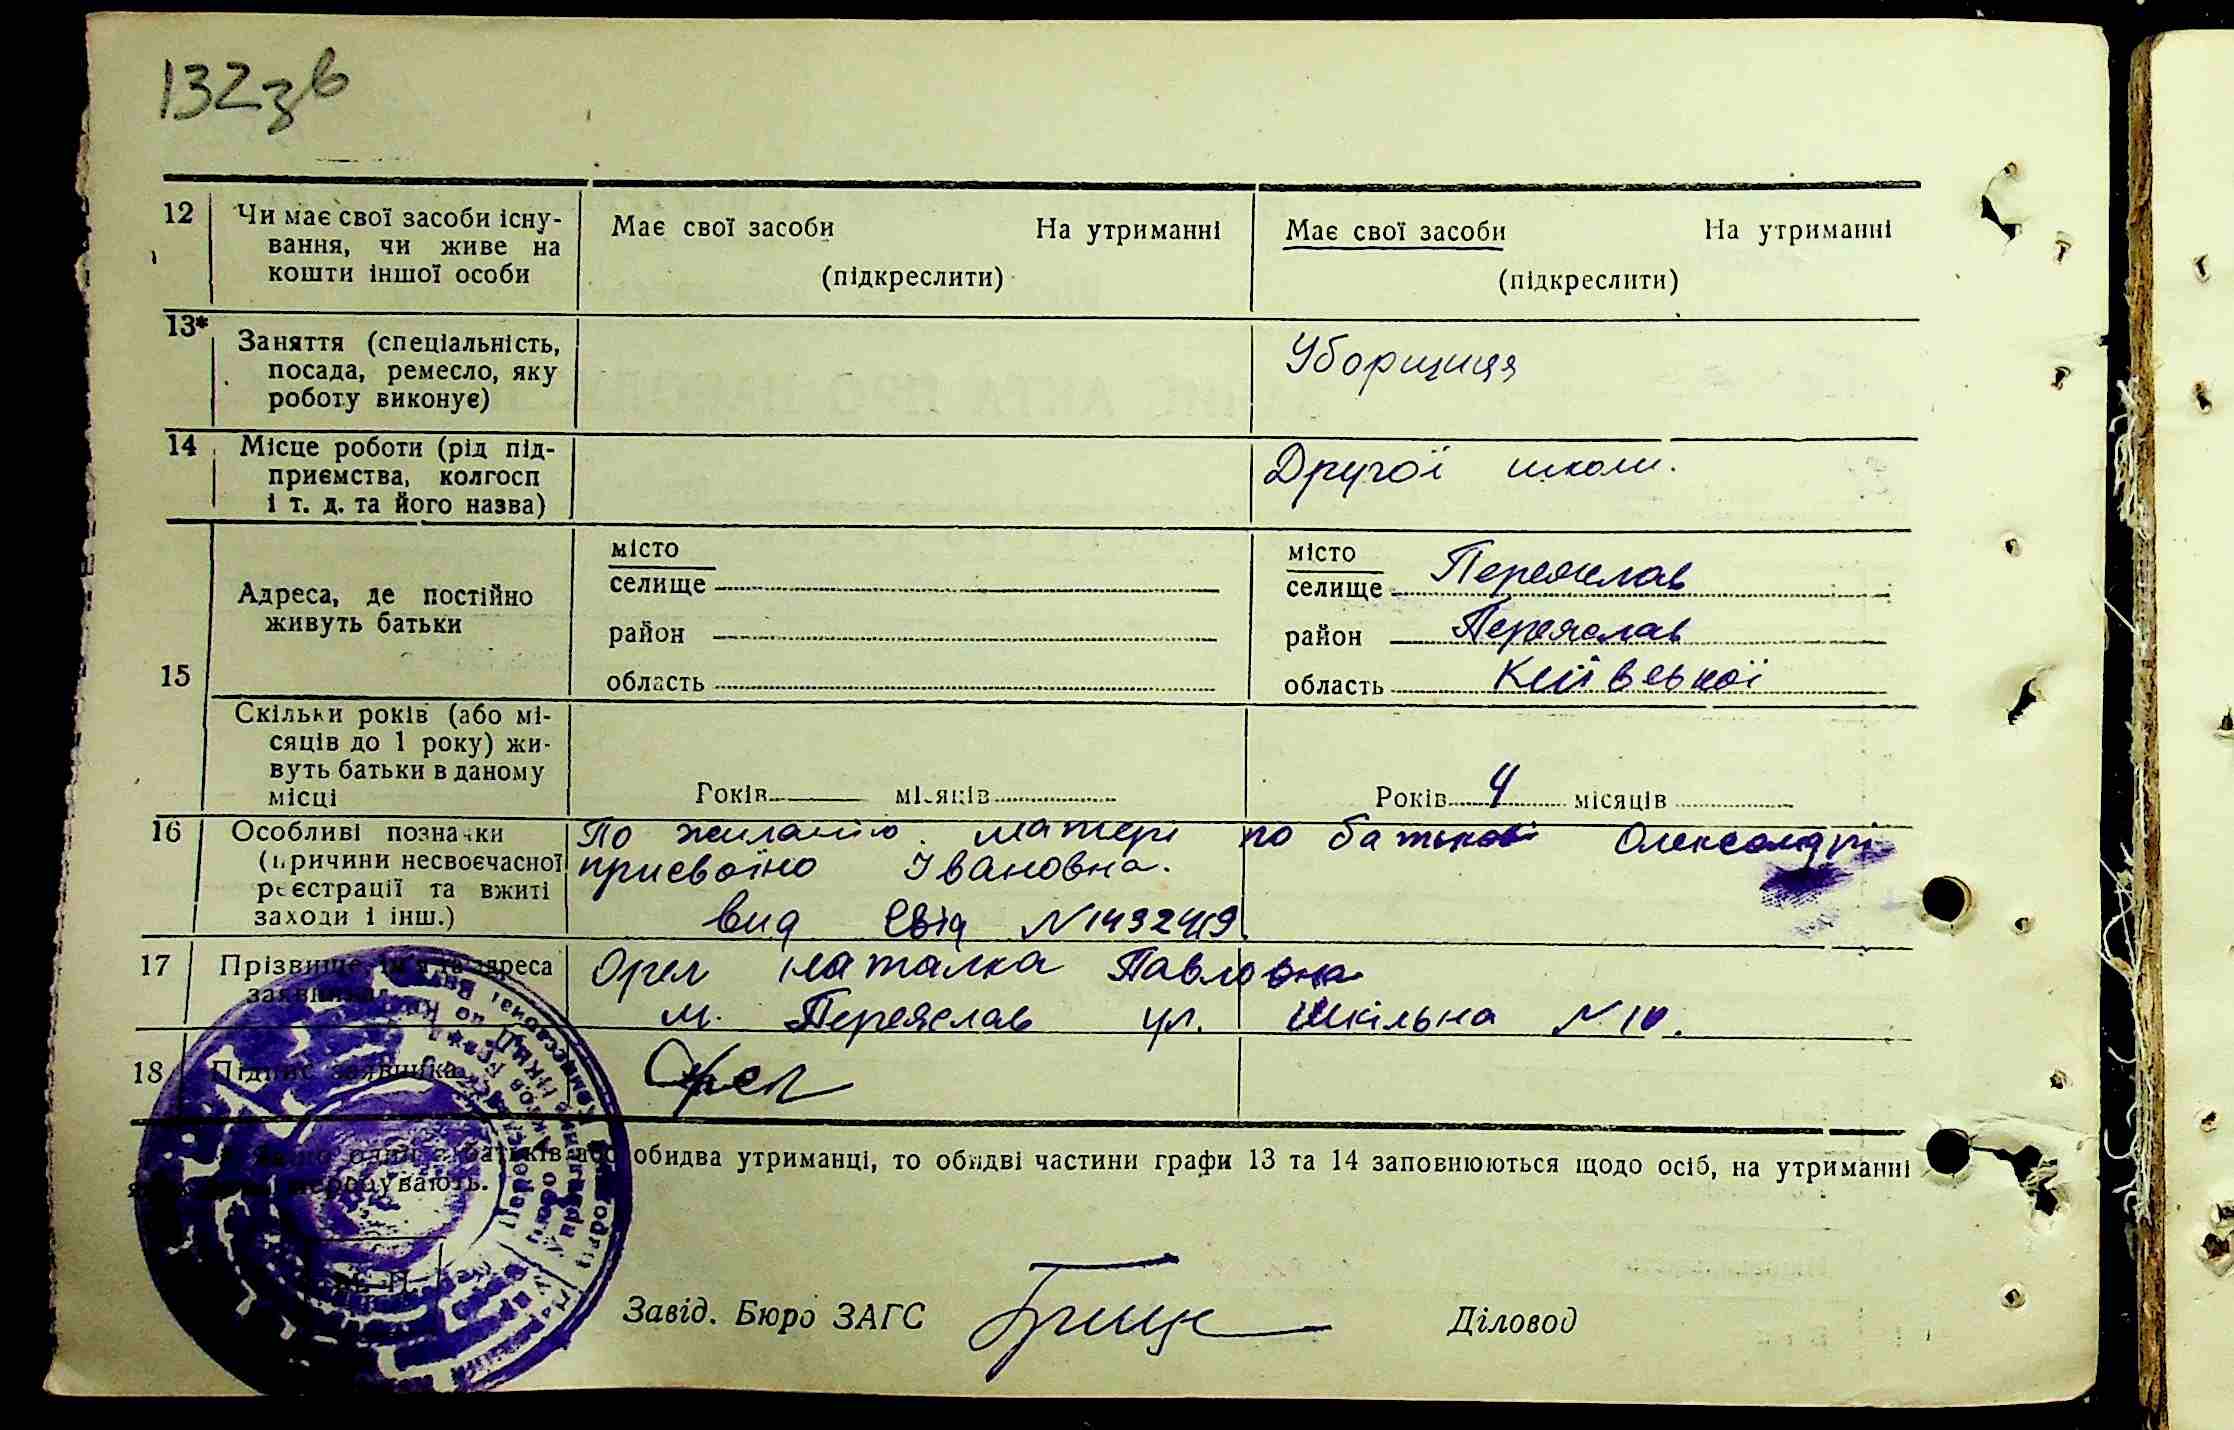 132зв
12 Чи має свої засоби існу-
вання, чи живе на
кошти іншої особи
Має свої засоби На утриманні
(підкреслити)
Має свої засоби На утриманні
(підкреслити)
13* Заняття (спеціальність,
посада, ремесло, яку
роботу виконує)
Уборщиця
14 Місце роботи (рід під-
приємства, колгосп
і т. д. та його назва)
Другої школи.
15
Адреса, де постійно
живуть батьки
місто
селище
район
область
місто
селище Переяслав
район Переяслав
область Київської
Скільки років (або мі-
сяців до 1 року) жи-
вуть батьки в даному
місці
Років місяців
Років 4 місяців
16 Особливі познаки
(причини несвоєчасної
реєстрації та вжиті
заходи і інш.)
По жиланию матері по батькові Олександрі
присвоїно Івановна.
вид Свід N1432419
17 Прізвище, ім'я та адреса
заявника
Орел Наталка Павловна
м. Переяслав ул. Шкільна N 10.
18 Підпис заявника
Орел
батьків або обидва утриманці, то обидві частини графи 13 та 14 заповнюються щодо осіб, на утриманні
М. П.
Завід. Бюро ЗАГС Діловод